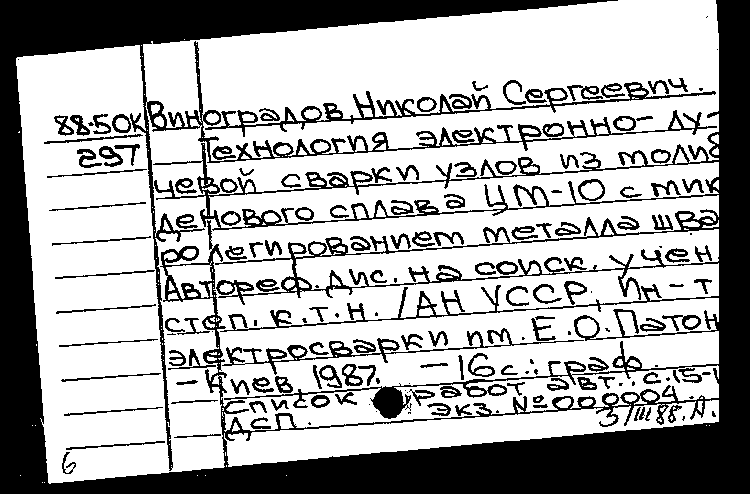 88-50К Виноградов, Николай Сергеевич.
297 Технология электронно-лу-
чевой сварки узлов из молиб
денового сплава ЦМ-10 с мик
ролегированием металла шва
Автореф. дис. на соиск. учен.
степ. к.т.н. /АН УССР, Ин-т
электросварки им. Е.О. Патон
- Киев, 1987. - 16 с.: граф
Список работ авт.: с. 15-1
ДСП. Экз. № 000004.
3/III 88. А.
6